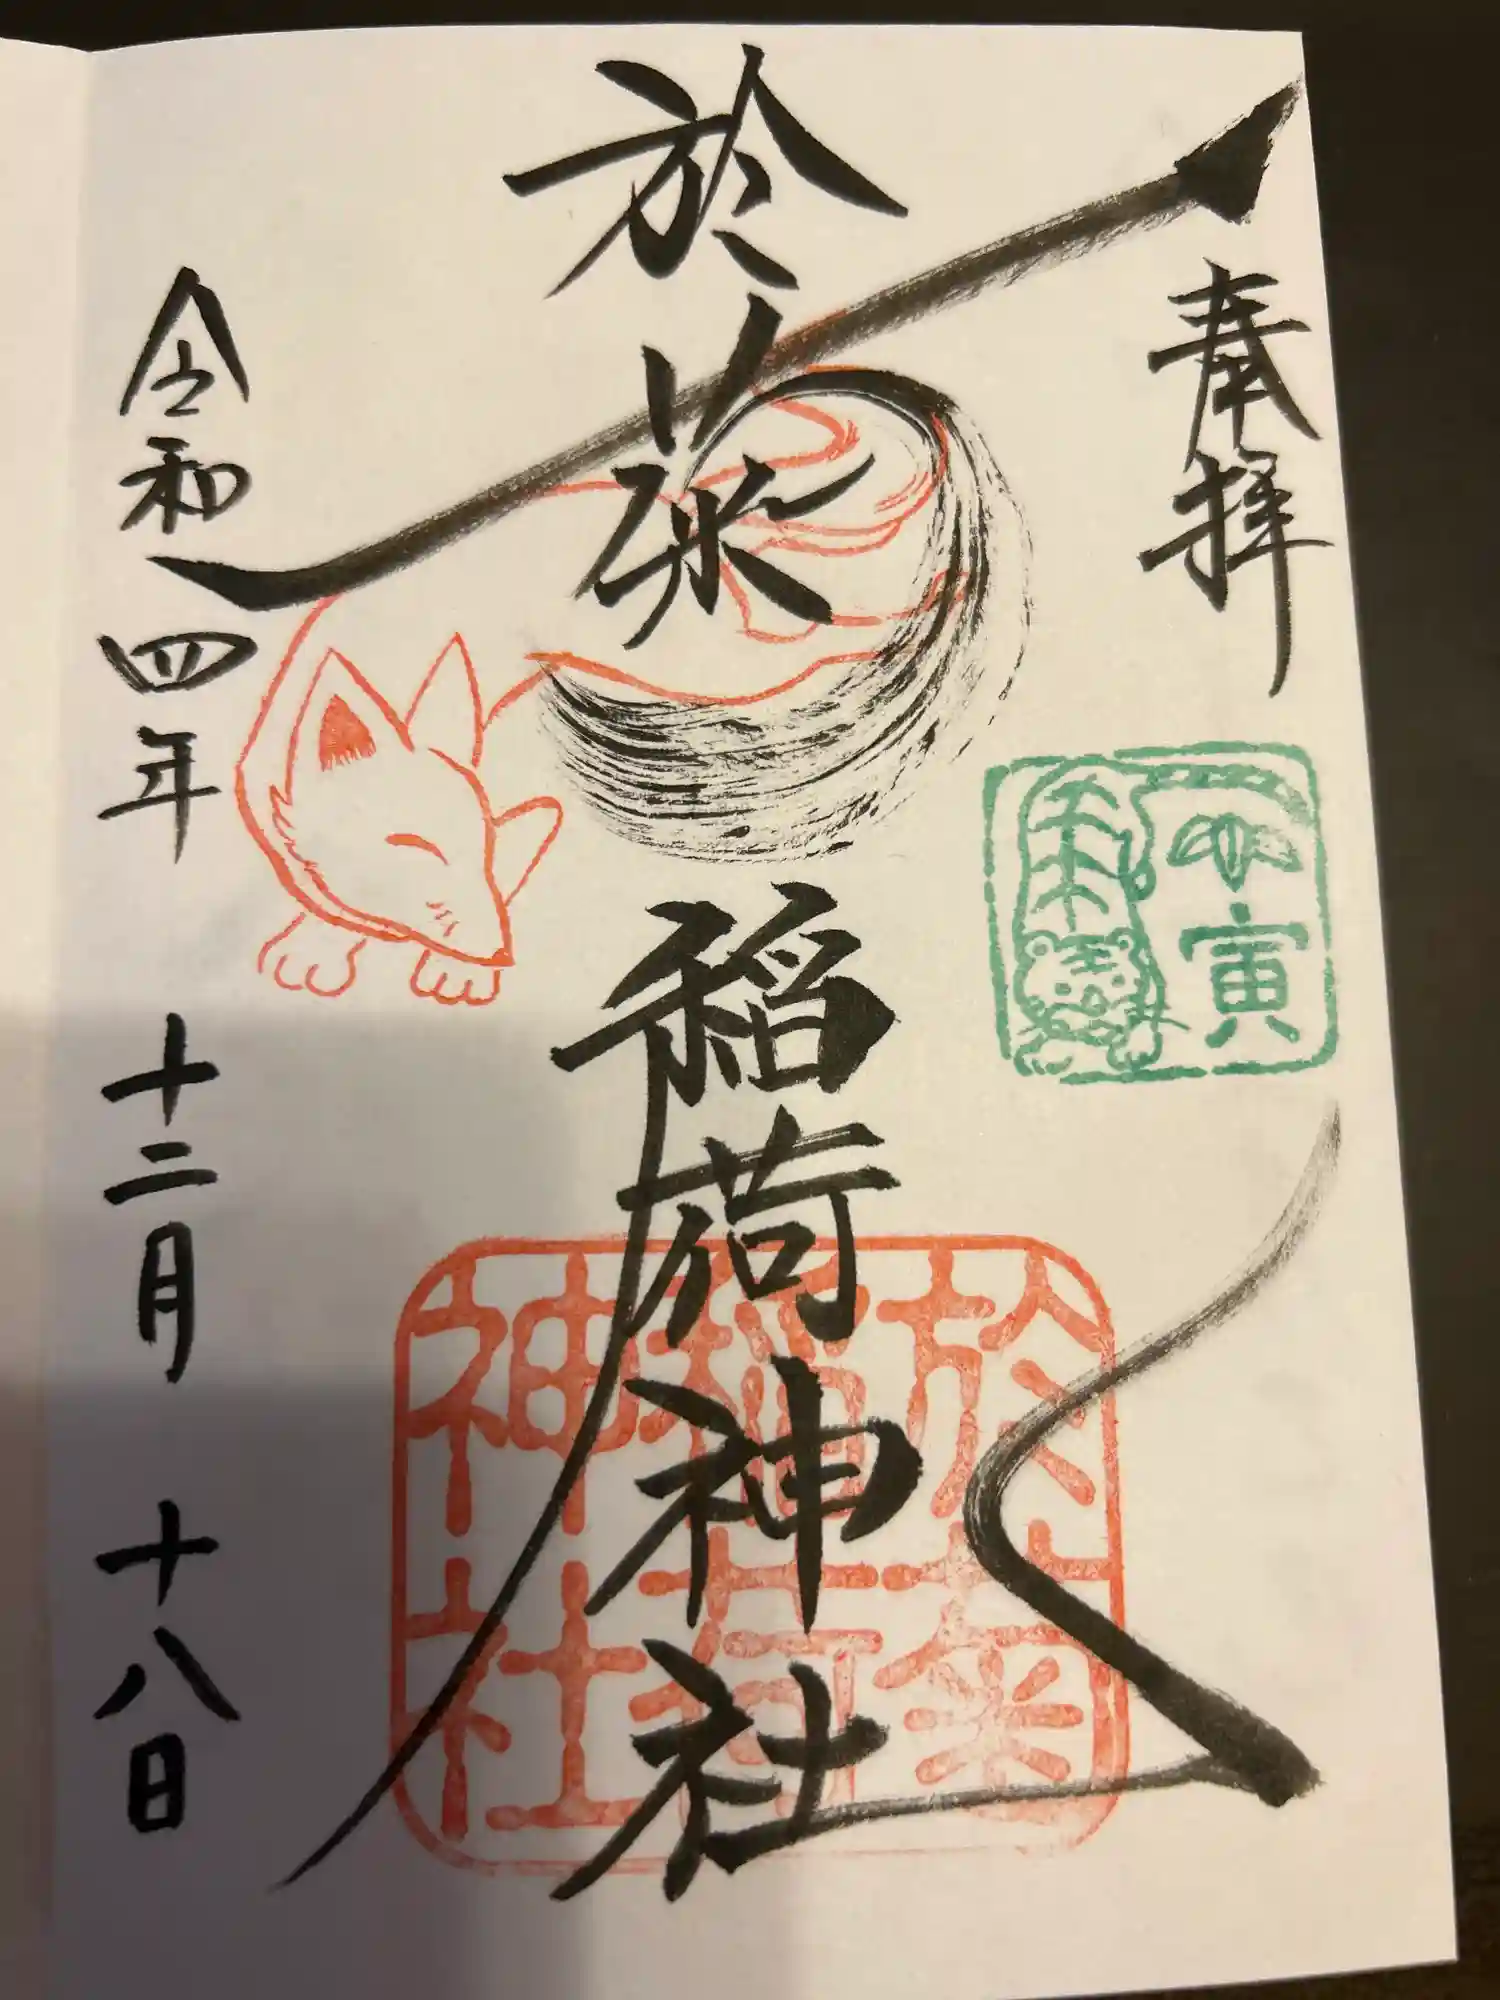 奉拝
壬寅
於菊稲荷神社
於菊
稲荷
神社
令和四年 十二月 十八日